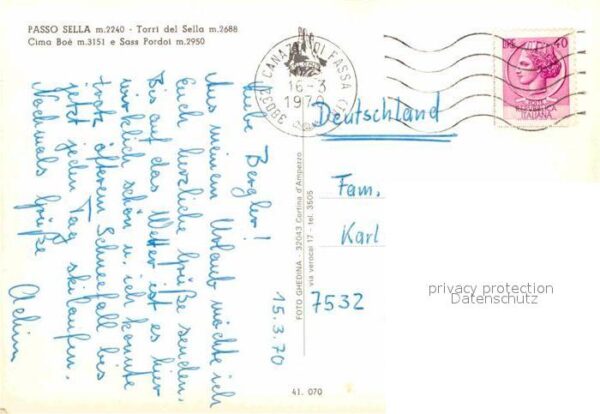 PASSO SELLA m.2240 - Torri del Sella m.2688
Cima Boè m.3151 e Sass Pordoi m.2950
Liebe Bergler!
Aus meinem Urlaub möchte ich
Euch herzliche Grüße senden.
Bis auf das Wetter ist es hier
wirklich schön u. ich konnte
trotz öfterem Schneefall bis
jetzt jeden Tag skilaufen.
Nochmals Grüße
Achim
15.3.70
FOTO GHEDINA - 32043 Cortina d'Ampezzo
via verocai 17 - tel. 3505
38032 CANAZEI DI FASSA
16-3
1970
LIRE 40
REPUBBLICA
ITALIANA
Deutschland
Fam.
Karl
7532
privacy protection
Datenschutz
41. 070